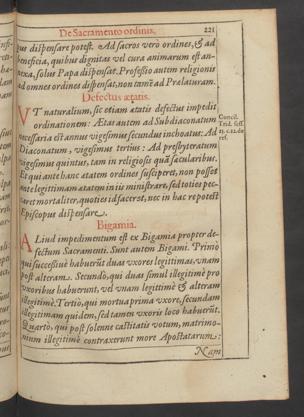 De Sacramento ordinis. 221
que dispensare potest. Ad sacros verò ordines, & ad
beneficia, quibus dignitas vel cura animarum est an-
nexa, solus Papa dispensat. Professio autem religionis
ad omnes ordines dispensat, non tamẽ ad Prelaturam.
Defectus ætatis.
VT naturalium, sic etiam ætatis defectus impedit
ordinationem: Ætas autem ad Subdiaconatum
necessaria est annus vigesimus secundus inchoatus: Ad
Diaconatum, vigesimus tertius: Ad presbyteratum
vigesimus quintus, tam in religiosis quã sæcularibus.
Et qui ante hanc ætatem ordines susciperet, non posset
ante legittimam ætatem in iis ministrare, sed toties pec-
caret mortaliter, quoties id faceret, nec in hac re potest
Episcopus dispensare.
Concil.
Trid. sess.
23. c. 12. de
ref.
Bigamia.
ALiud impedimentum est ex Bigamia propter de-
fectum Sacramenti. Sunt autem Bigami. Primò
qui successiuè habuerũt duas vxores legitimas, vnam
post alteram. Secundò, qui duas simul illegitimè pro
vxoribus habuerunt, vel vnam legittimè & alteram
illegitimè. Tertiò, qui mortua prima vxore, secundam
illegitimam quidem, sed tamen vxoris loco habuerũt.
Quartò, qui post solenne castitatis votum, matrimo-
nium illegitimè contraxerunt more Apostatarum:
Nam